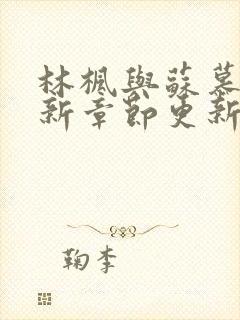 林楓與蘇慕
新章節更新
鞠李